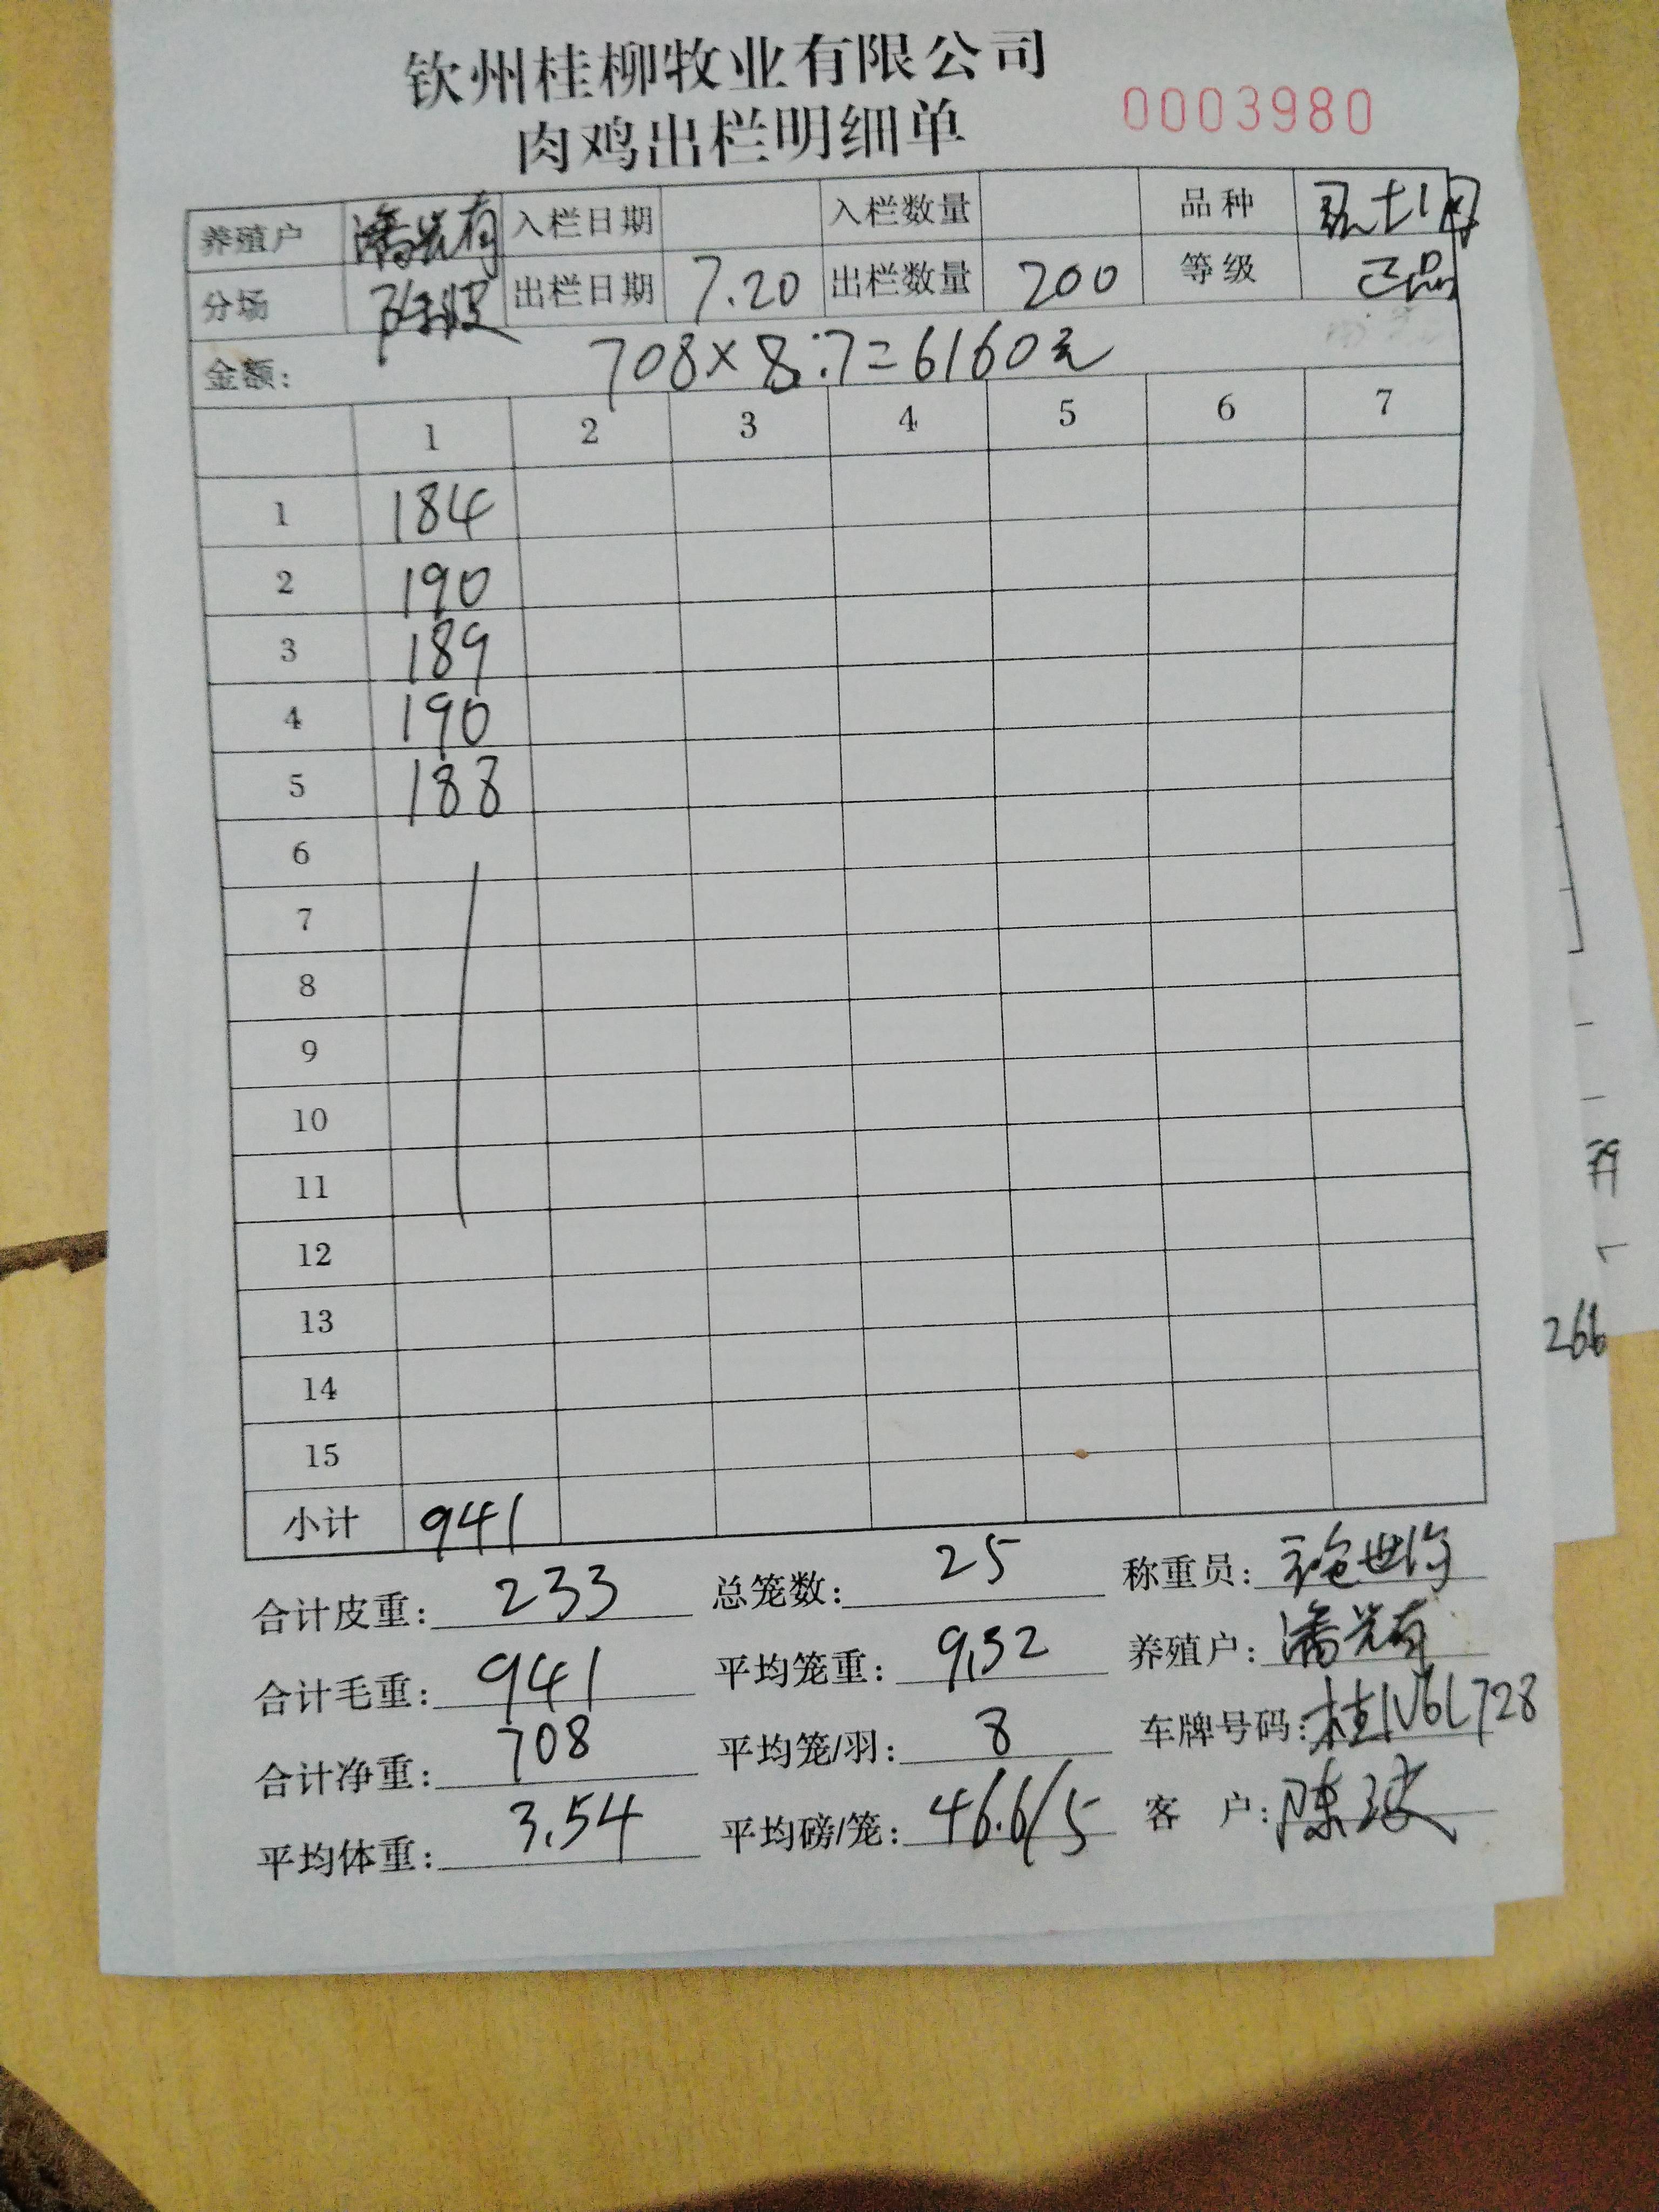 钦州桂柳牧业有限公司
肉鸡出栏明细单 0003980
养殖户 潘光有 入栏日期 入栏数量 品种
分场 陈波 出栏日期 7.20 出栏数量 200 等级 正品
金额: 708×8.7=6160元
1 2 3 4 5 6 7
1 184
2 190
3 189
4 190
5 188
6
7
8
9
10
11
12
13
14
15
小计 941
合计皮重: 233 总笼数: 25 称重员:
合计毛重: 941 平均笼重: 9.32 养殖户: 潘光有
合计净重: 708 平均笼/羽: 8 车牌号码: 桂N6L728
平均体重: 3.54 平均磅/笼: 46.6/5 客 户: 陈波
266